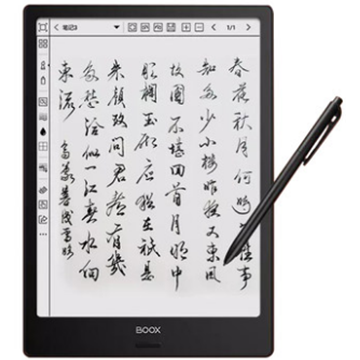 笔记3
1/1
春花秋月何时了往事
知多少小楼昨夜又东风
故國不堪回首月明中
雕欄玉砌应猶在祇是
朱顏改问君能有幾
多愁恰似一江春水向
东流
BOOX